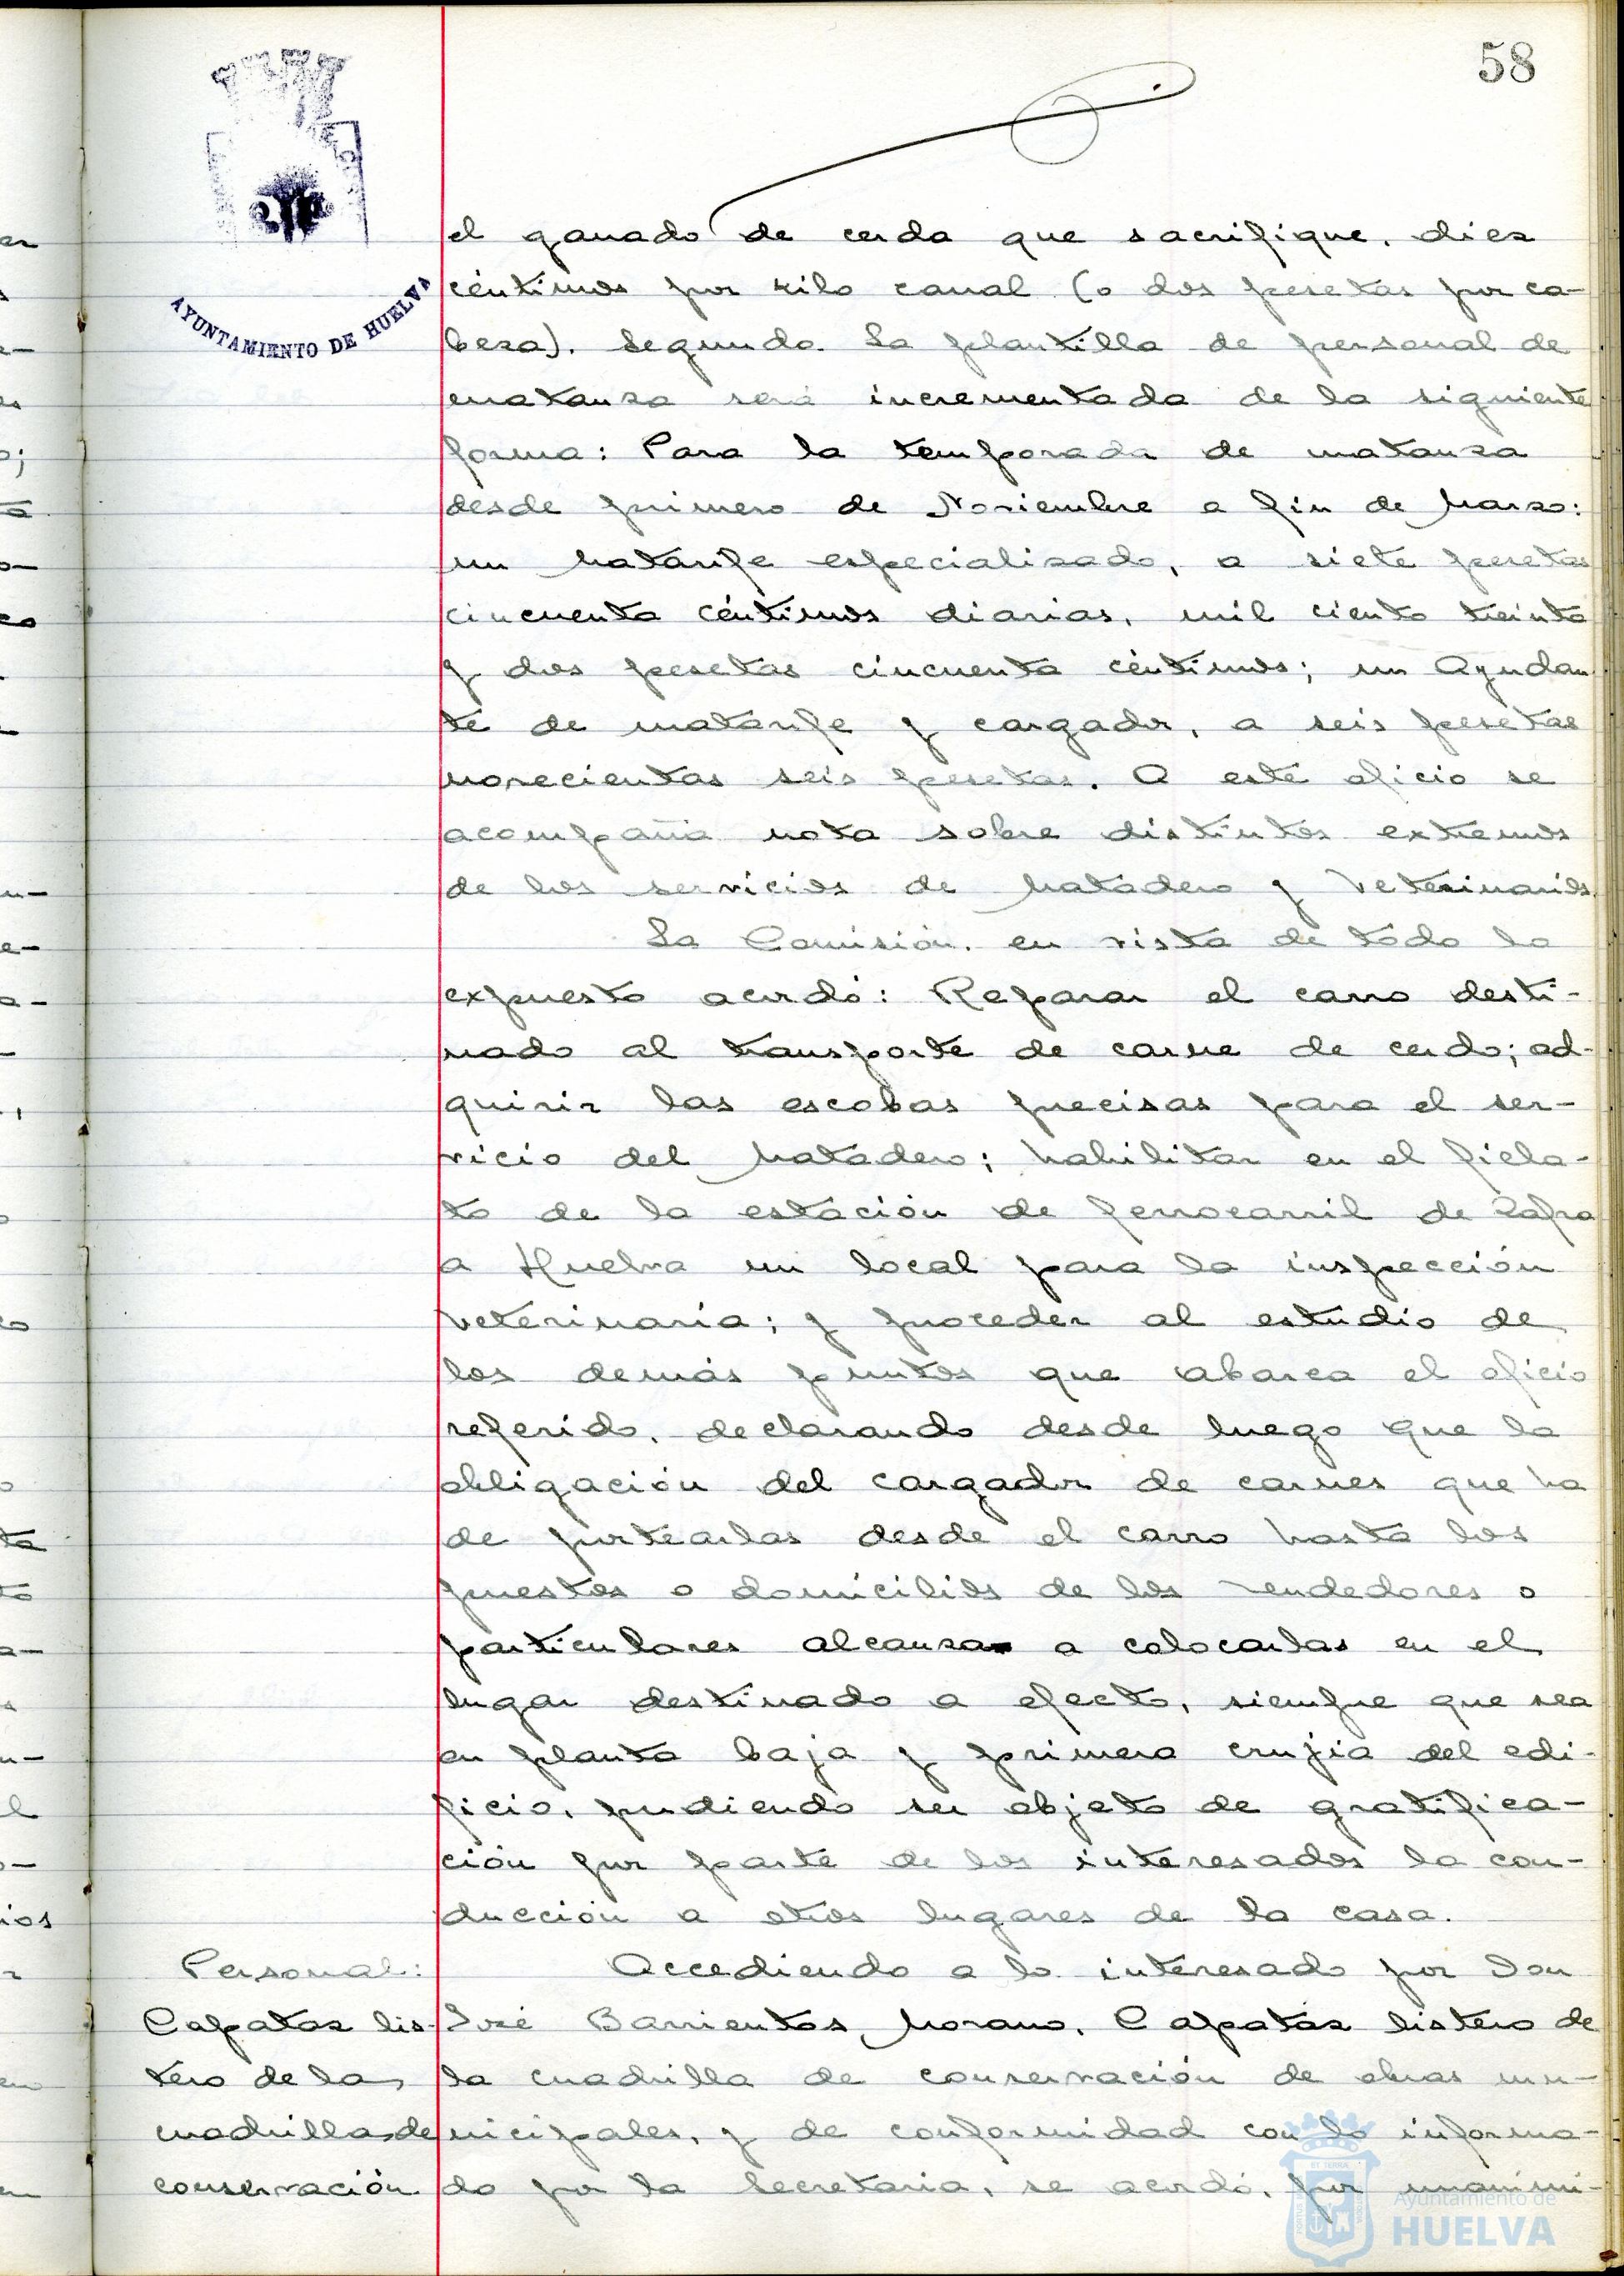 58
AYUNTAMIENTO DE HUELVA
el ganado de cerda que sacrifique, diez
céntimos por kilo canal (o dos pesetas por ca-
beza). Segundo. La plantilla de personal de
matanza será incrementada de la siguiente
forma: Para la temporada de matanza
desde primero de Noviembre a fin de Marzo:
un Matarife especializado, a siete pesetas
cincuenta céntimos diarias, mil ciento treinta
y dos pesetas cincuenta céntimos; un Ayudan
te de matarife y cargador, a seis pesetas
novecientas seis pesetas. A este oficio se
acompaña nota sobre distintos extremos
de los servicios de Matadero y Veterinarios.
La Comisión, en vista de todo lo
expuesto acordó: Reparar el carro desti-
nado al transporte de carne de cerdo; ad-
quirir las escobas precisas para el ser-
vicio del Matadero; habilitar en el fiela-
to de la estación de ferrocarril de Zafra
a Huelva un local para la inspección
veterinaria; y proceder al estudio de
los demás puntos que abarca el oficio
referido, declarando desde luego que la
obligación del cargador de carnes que ha
de portearlas desde el carro hasta los
puestos o domicilios de los vendedores o
particulares alcanza a colocarlas en el
lugar destinado a efecto, siempre que sea
en planta baja y primera crujía del edi-
ficio, pudiendo ser objeto de gratifica-
ción por parte de los interesados la con-
ducción a otros lugares de la casa.
Personal:
Capataz lis-
tero de la
cuadrilla de
conservación
Accediendo a lo interesado por Don
José Barrientos Morano, Capataz listero de
la cuadrilla de conservación de obras mu-
nicipales, y de conformidad con lo informa-
do por la Secretaría, se acordó, por unanimi-
Ayuntamiento de
HUELVA